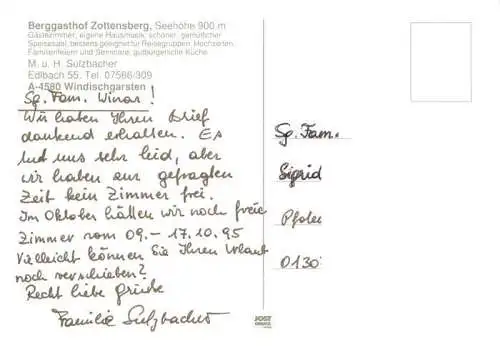 Berggasthof Zottensberg, Seehöhe 900 m
Gästezimmer, eigene Hausmusik, schöner, gemütlicher
Speisesaal, bestens geeignet für Reisegruppen, Hochzeiten,
Familienfeiern und Seminare, gutbürgerliche Küche
M. u. H. Sulzbacher
Edlbach 55, Tel. 07566/309
A-4580 Windischgarsten
Sg. Fam. !
Wir haben Ihren Brief
dankend erhalten. Es
tut uns sehr leid, aber
wir haben zur gefragten
Zeit kein Zimmer frei.
Im Oktober hätten wir noch freie
Zimmer vom 09. - 17.10.95
Vielleicht können Sie Ihren Urlaub
noch verschieben?
Recht liebe Grüße
Familie Sulzbacher
Sg. Fam.
Sigrid
0130
JOST